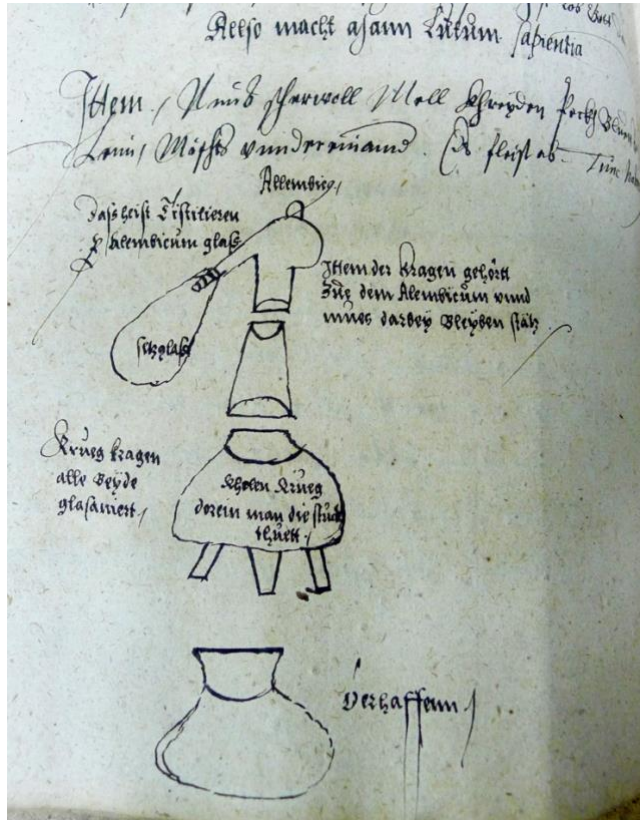 Allso macht mann Lutum Sapientia
Ittem, Nimb scherwoll Mell Khreyden
Leim, Mischs vndereinand.
Allembicg,
Dass heist Distilieren
p Alembicum glass
Ittem der Kragen gehört
Zue dem Alembicum vnnd
mues darbey Bleyben stätz
setzglass
Krueg kragen
alle Beyde
glasaniert,
Kholen Krueg
dorein man die stuck
thuett.
Verhaffenn